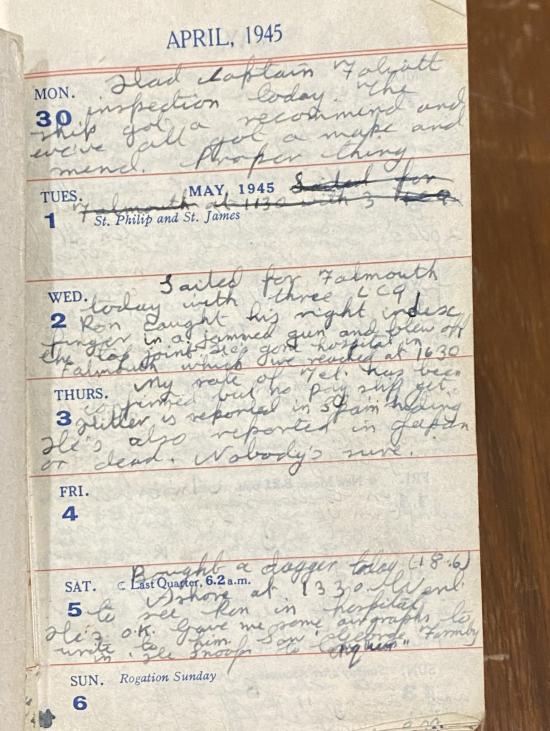 APRIL, 1945
Had Captain
MON. inspection today. The
30 ship got a recommend and
we've all got a make and
mend. Proper thing
TUES. MAY 1945 Sailed for
1 Falmouth at 1130 with 3 LCG
St. Philip and St. James
Sailed for Falmouth
WED. today with three LCG
2 Ron caught his right index
finger in a jammed gun and blew off
the top joint. He's gone hospital in
Falmouth which we reached at 1630
THURS. My rate of Tel. has been
confirmed but no pay still yet.
3 Hitler is reported in Spain hiding
He's also reported in Japan
or dead. Nobody's sure.
FRI.
4
Bought a dagger today (18-6)
SAT. Last Quarter, 6.2 a.m.
Ashore at 1330 and
5 to see Ron in hospital
He's O.K. Gave me some airgraphs to
write to him. Saw George Formby
in "He Snoops to Conquer"
SUN. Rogation Sunday
6